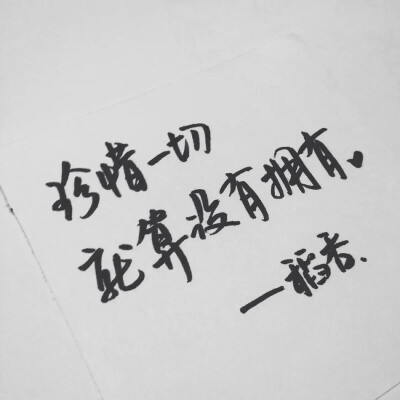 珍惜一切
就算没有拥有。
—稻香.